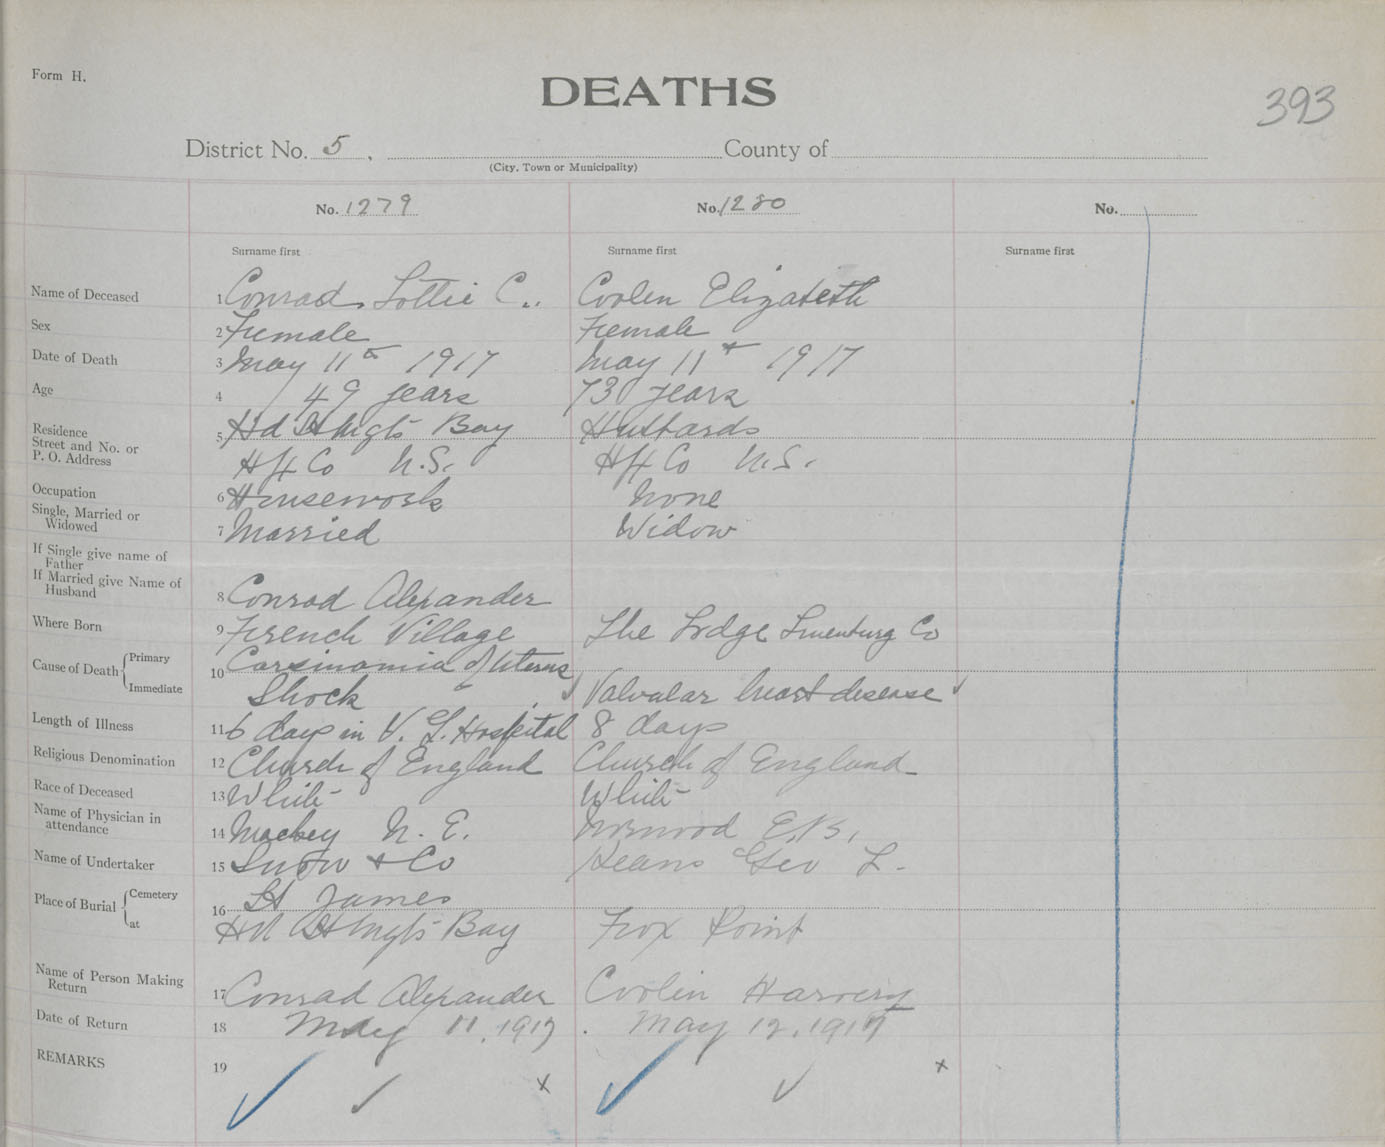 Form H.
DEATHS
393
District No. 5. County of
(City, Town or Municipality)
No. 1279 No. 1280 No.
Surname first Surname first Surname first
Name of Deceased 1 Conrad, Lottie C. Coolen Elizabeth
Sex 2 Female Female
Date of Death 3 May 11th 1917 May 11th 1917
Age 4 49 years 73 years
Residence
Street and No. or
P. O. Address
5 Hd St Mgts Bay Hubbards
Hfx Co N.S. Hfx Co N.S.
Occupation 6 Housework None
Single, Married or
Widowed
7 Married Widow
If Single give name of
Father
If Married give Name of
Husband
8 Conrad Alexander
Where Born 9 French Village The Lodge Lunenburg Co
Cause of Death { Primary
Immediate
10 Carsinomia of Uterus
Shock Valvular heart disease
Length of Illness 11 6 days in V. G. Hospital 8 days
Religious Denomination 12 Church of England Church of England
Race of Deceased 13 White White
Name of Physician in
attendance
14 Mackay N. E. Norwood E.B.
Name of Undertaker 15 Snow & Co Keans Geo L.
Place of Burial { Cemetery
at
16 St James
Hd St Mgts Bay Fox Point
Name of Person Making
Return
17 Conrad Alexander Coolin Harvery
Date of Return 18 May 11, 1917 May 12, 1917
REMARKS 19